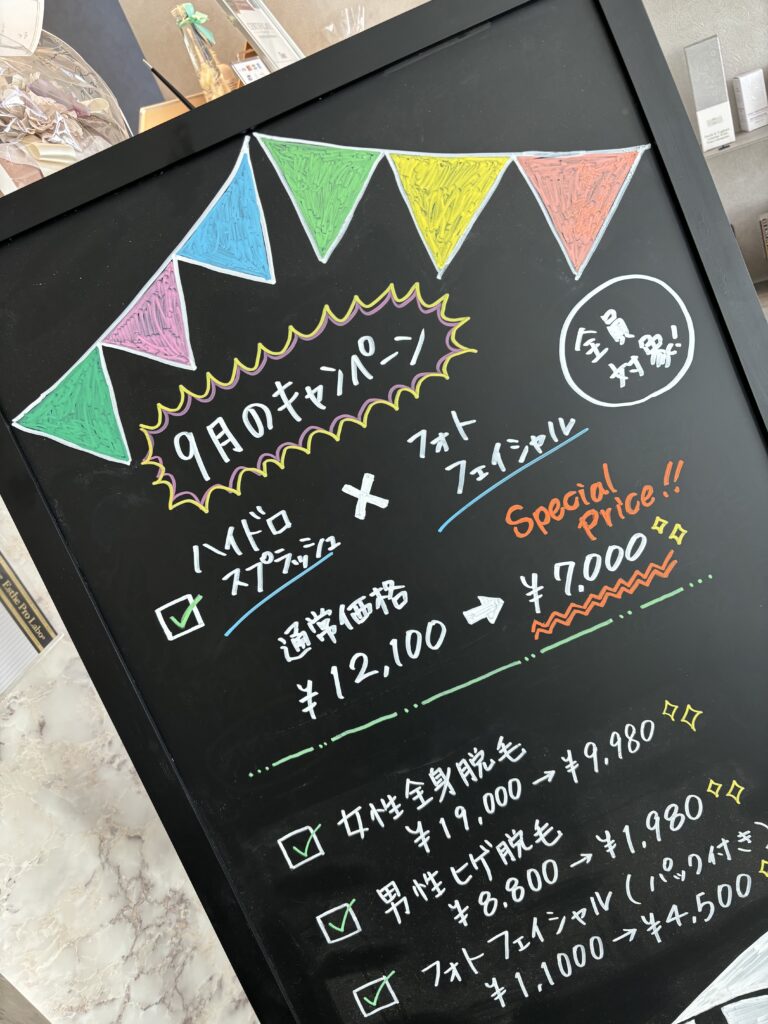 9月のキャンペーン
全員
対象!
ハイドロ
スプラッシュ
×
フォト
フェイシャル
通常価格
¥12,100
→
Special
Price!!
¥7.000
女性全身脱毛
¥19,000→¥9,980
男性ヒゲ脱毛
¥8.800→¥1.980
フォトフェイシャル(パック付き)
¥1,1000→¥4,500
Esthe Pro Labo